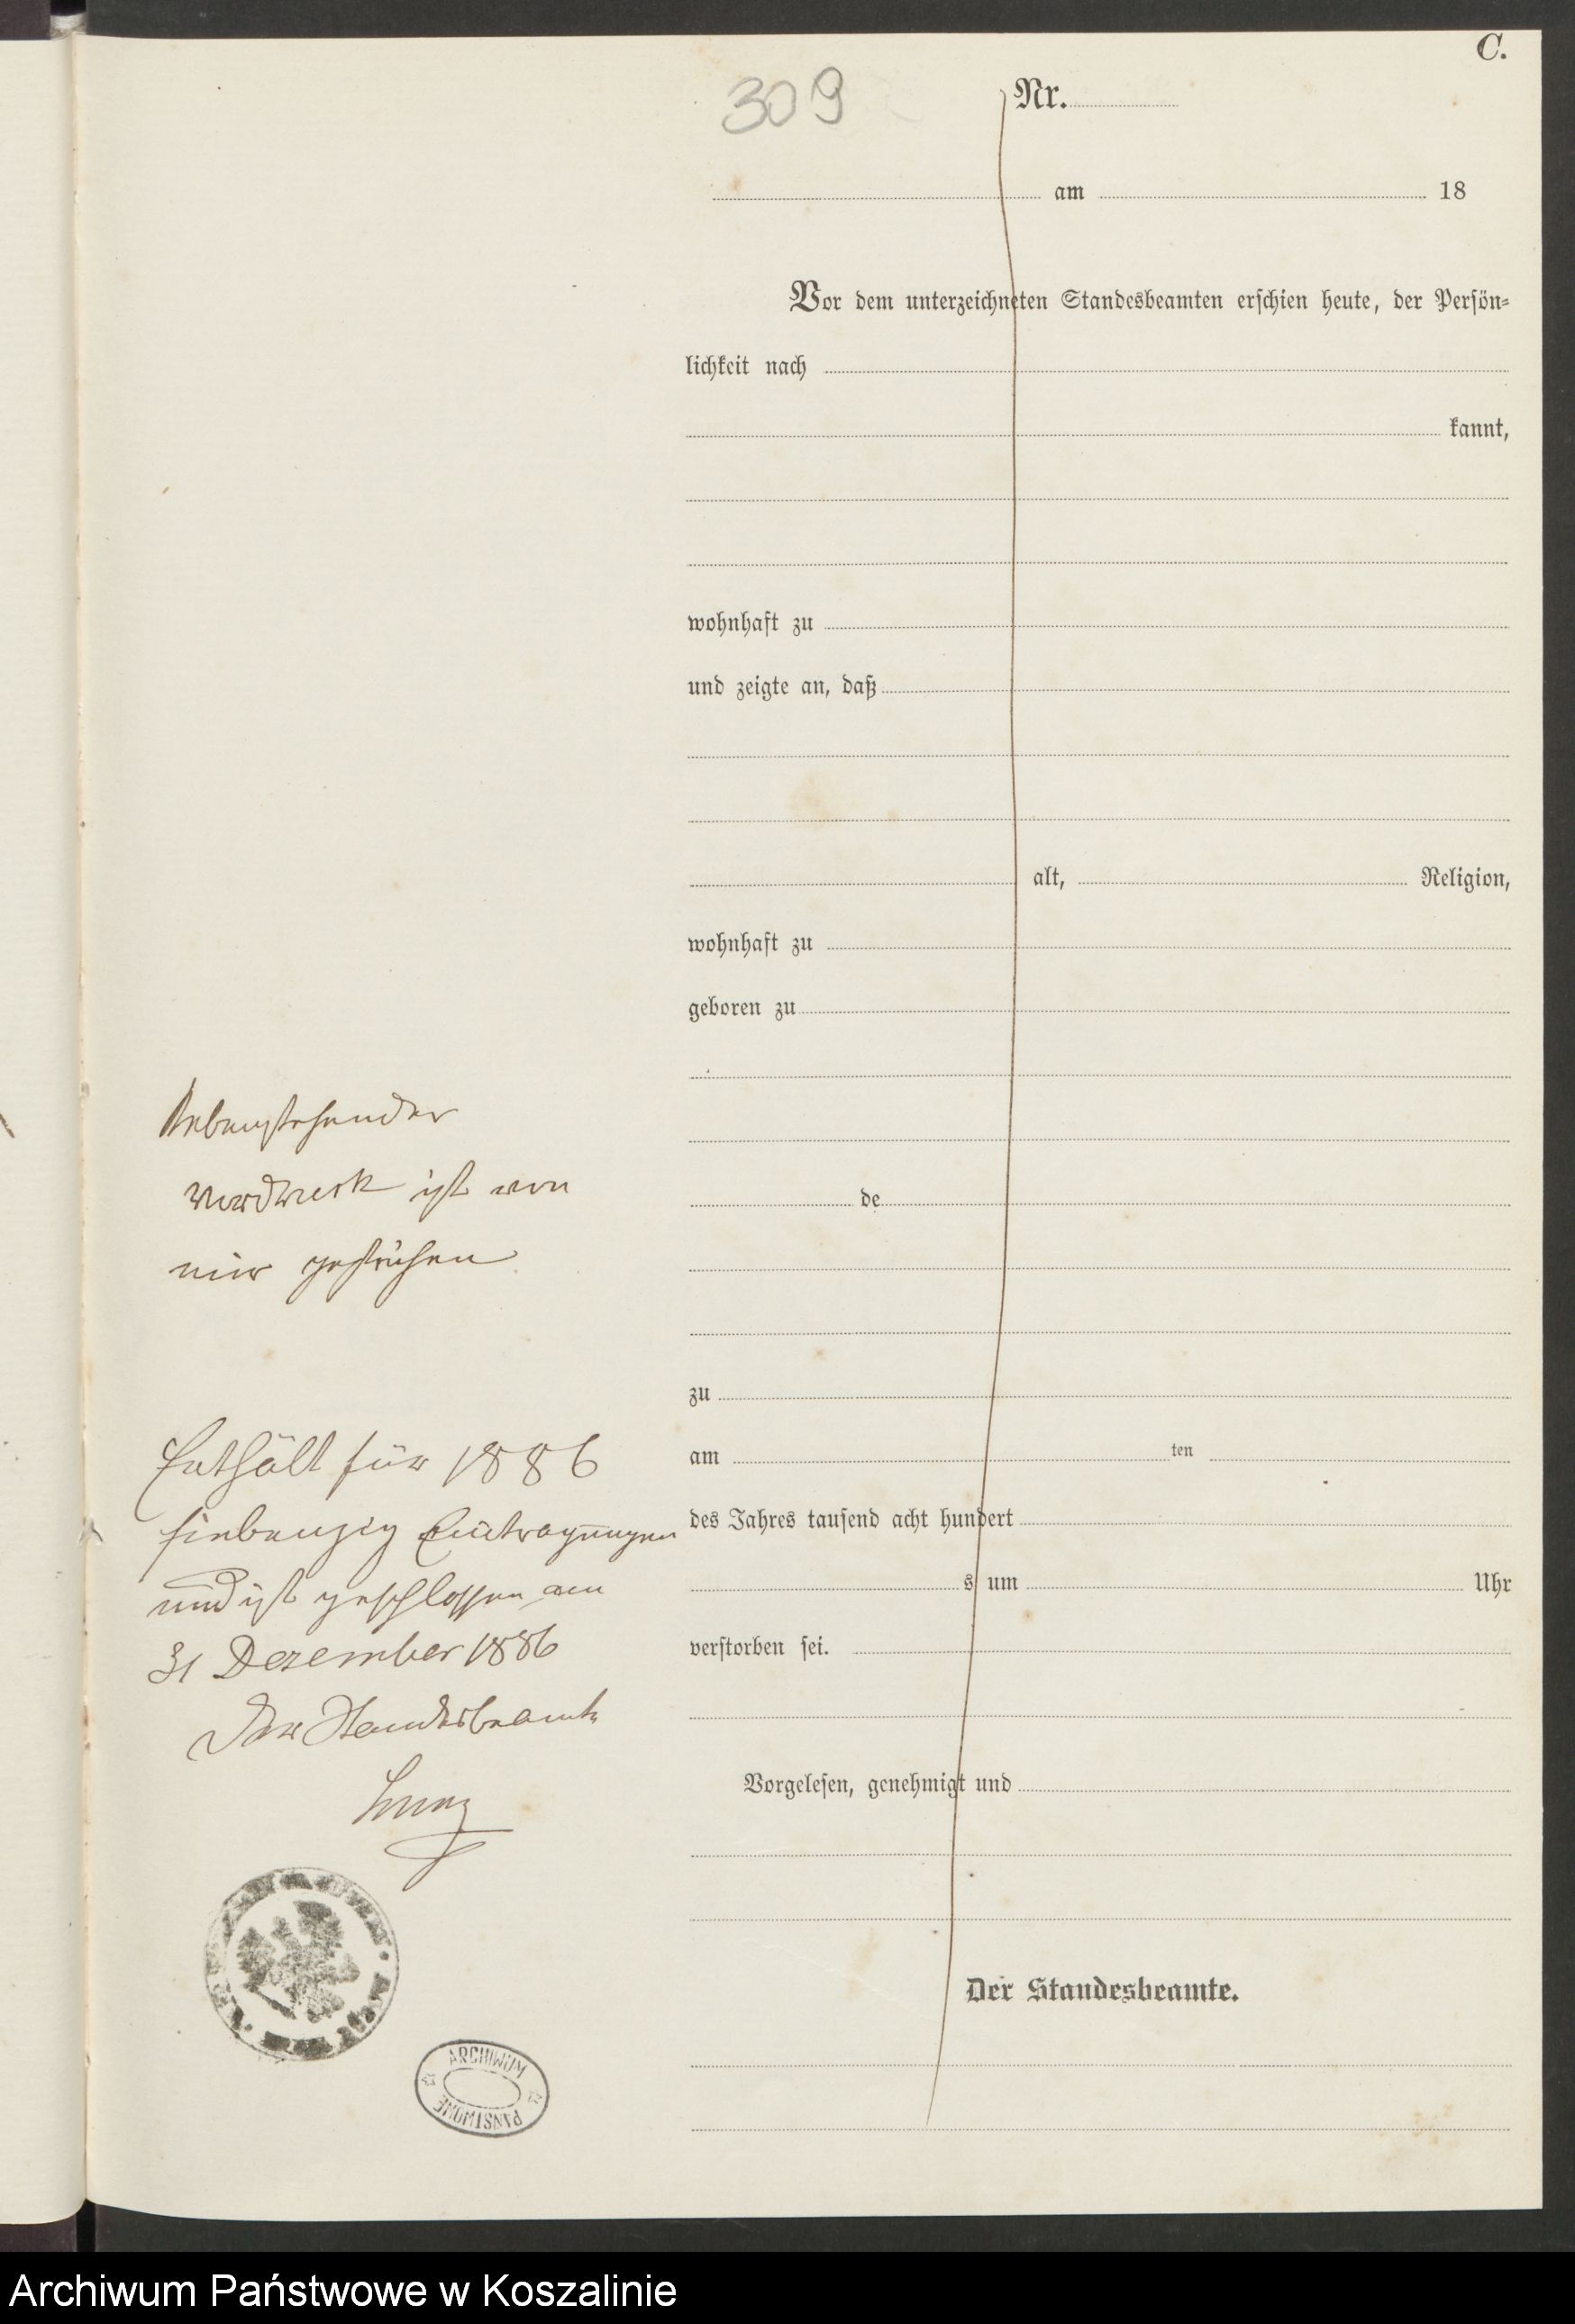 C.
309
Nr.
am 18
Vor dem unterzeichneten Standesbeamten erschien heute, der Persön-
lichkeit nach
kannt,
wohnhaft zu
und zeigte an, daß
alt, Religion,
wohnhaft zu
geboren zu
de
zu
am ten
des Jahres tausend acht hundert
s um Uhr
verstorben sei.
Vorgelesen, genehmigt und
Der Standesbeamte.
Nebenstehender
Vordruck ist von
mir gestrichen
Enthält für 1886
siebenzig Eintragungen
und ist geschlossen am
31 Dezember 1886
Der Standesbeamte
ARCHIWUM
PAŃSTWOWE
Archiwum Państwowe w Koszalinie